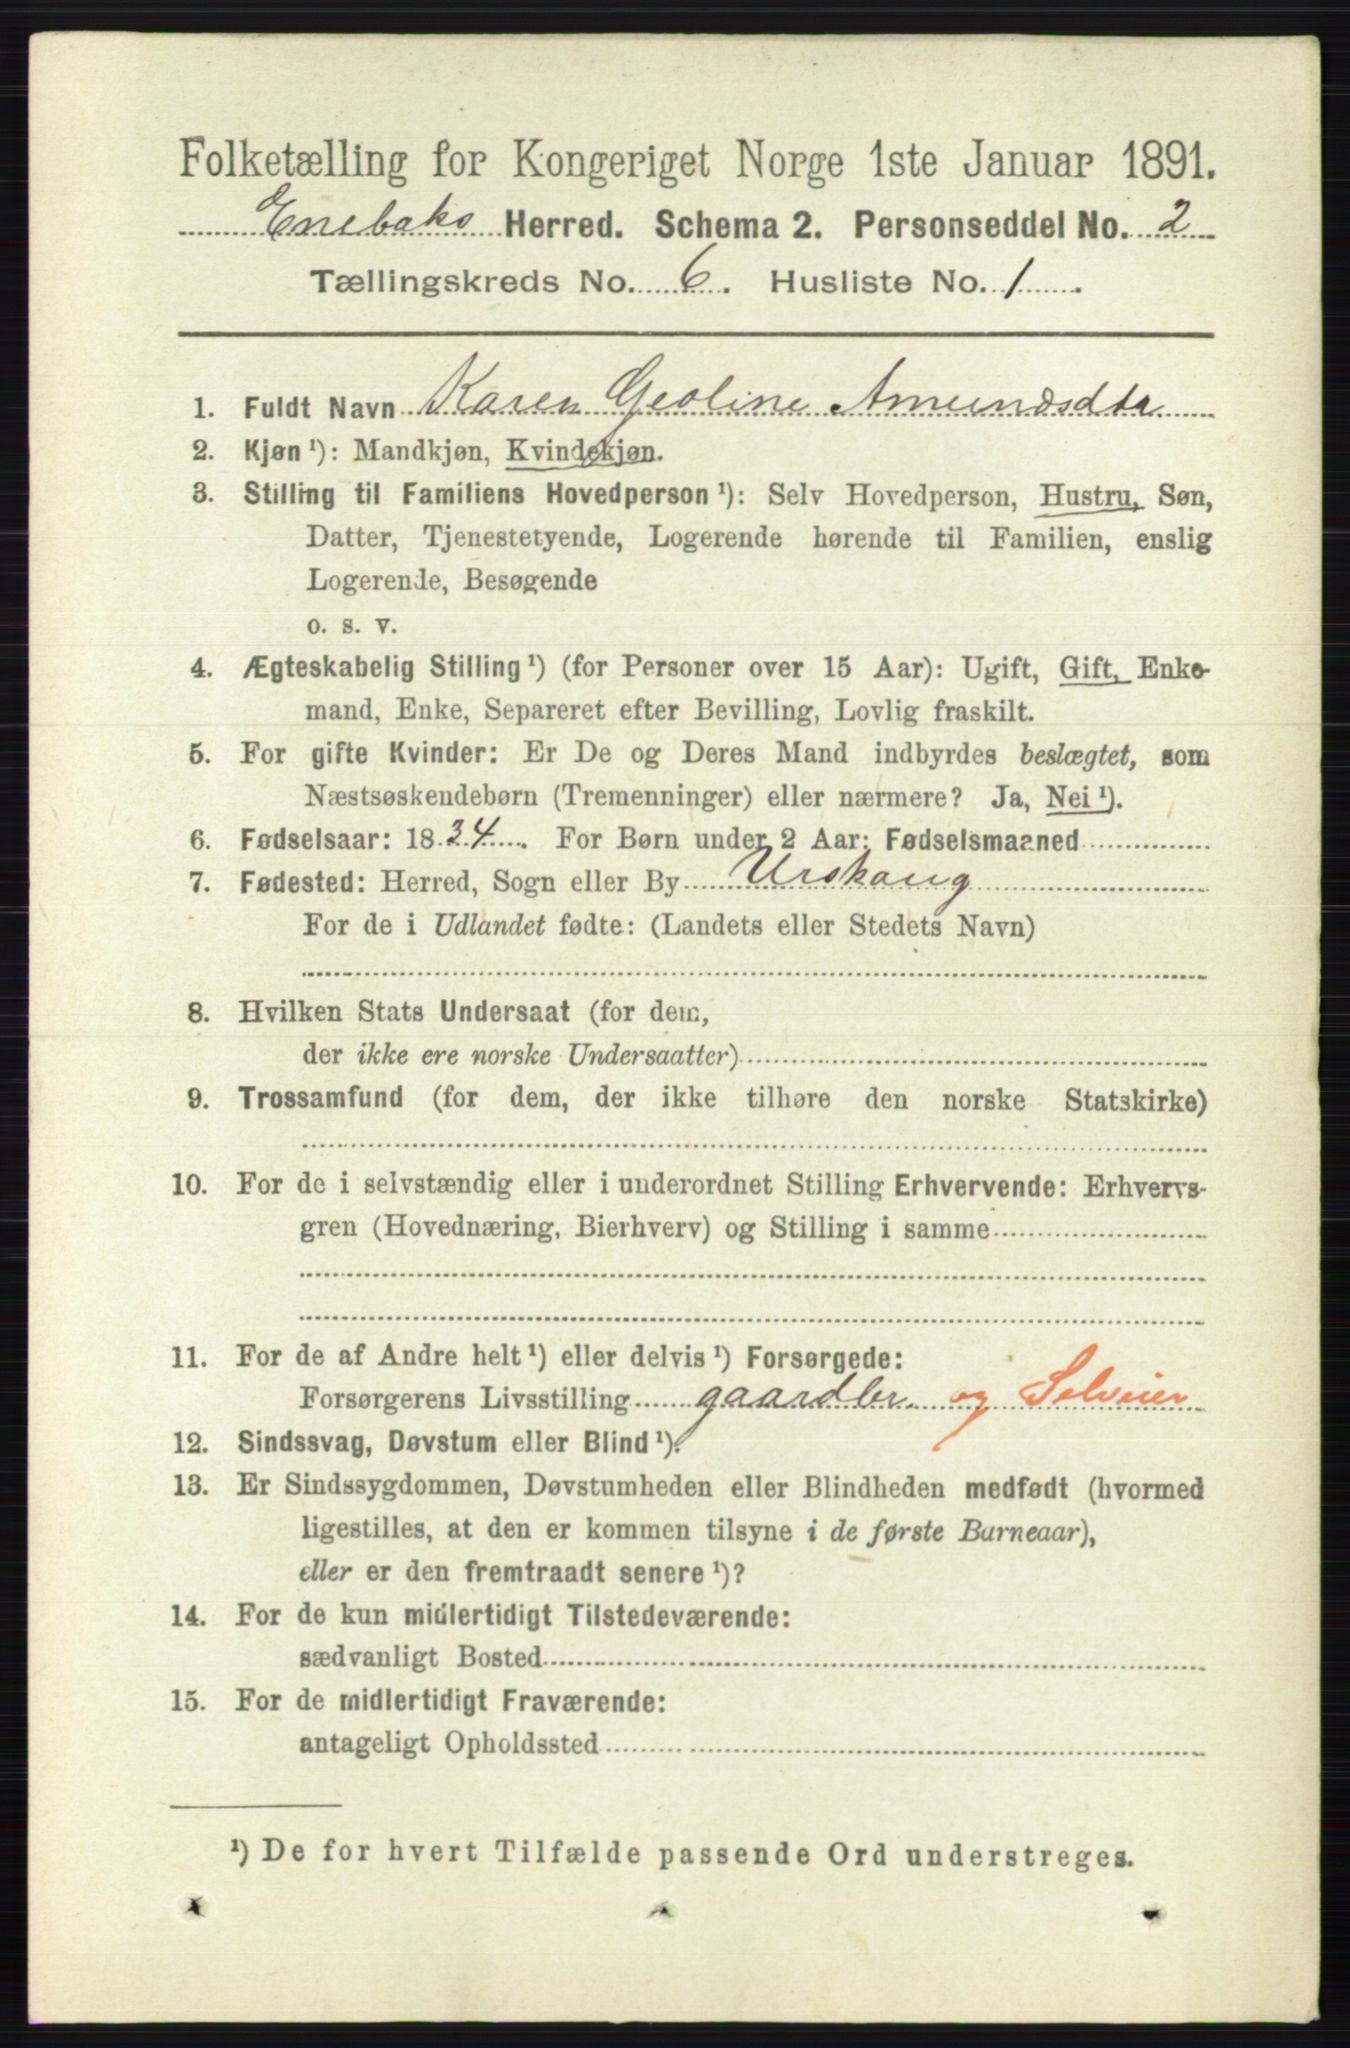 Folketælling for Kongeriget Norge 1ste Januar 1891.
Enebaks Herred. Schema 2. Personseddel No. 2
Tællingskreds No. 6. Husliste No. 1.
1. Fuldt Navn Karen Geoline Amundsdtr
2. Kjøn ¹): Mandkjøn, Kvindekjøn.
3. Stilling til Familiens Hovedperson ¹): Selv Hovedperson, Hustru, Søn,
Datter, Tjenestetyende, Logerende hørende til Familien, enslig
Logerende, Besøgende
o. s. v.
4. Ægteskabelig Stilling ¹) (for Personer over 15 Aar): Ugift, Gift, Enke-
mand, Enke, Separeret efter Bevilling, Lovlig fraskilt.
5. For gifte Kvinder: Er De og Deres Mand indbyrdes beslægtet, som
Næstsøskendebørn (Tremenninger) eller nærmere? Ja, Nei ¹).
6. Fødselsaar: 1834. For Børn under 2 Aar: Fødselsmaaned
7. Fødested: Herred, Sogn eller By Urskaug
For de i Udlandet fødte: (Landets eller Stedets Navn)
8. Hvilken Stats Undersaat (for dem,
der ikke ere norske Undersaatter)
9. Trossamfund (for dem, der ikke tilhøre den norske Statskirke)
10. For de i selvstændig eller i underordnet Stilling Erhvervende: Erhvervs-
gren (Hovednæring, Bierhverv) og Stilling i samme
11. For de af Andre helt ¹) eller delvis ¹) Forsørgede:
Forsørgerens Livsstilling gaardbr. og Selveier
12. Sindssvag, Døvstum eller Blind ¹).
13. Er Sindssygdommen, Døvstumheden eller Blindheden medfødt (hvormed
ligestilles, at den er kommen tilsyne i de første Barneaar),
eller er den fremtraadt senere ¹)?
14. For de kun midlertidigt Tilstedeværende:
sædvanligt Bosted
15. For de midlertidigt Fraværende:
antageligt Opholdssted
¹) De for hvert Tilfælde passende Ord understreges.